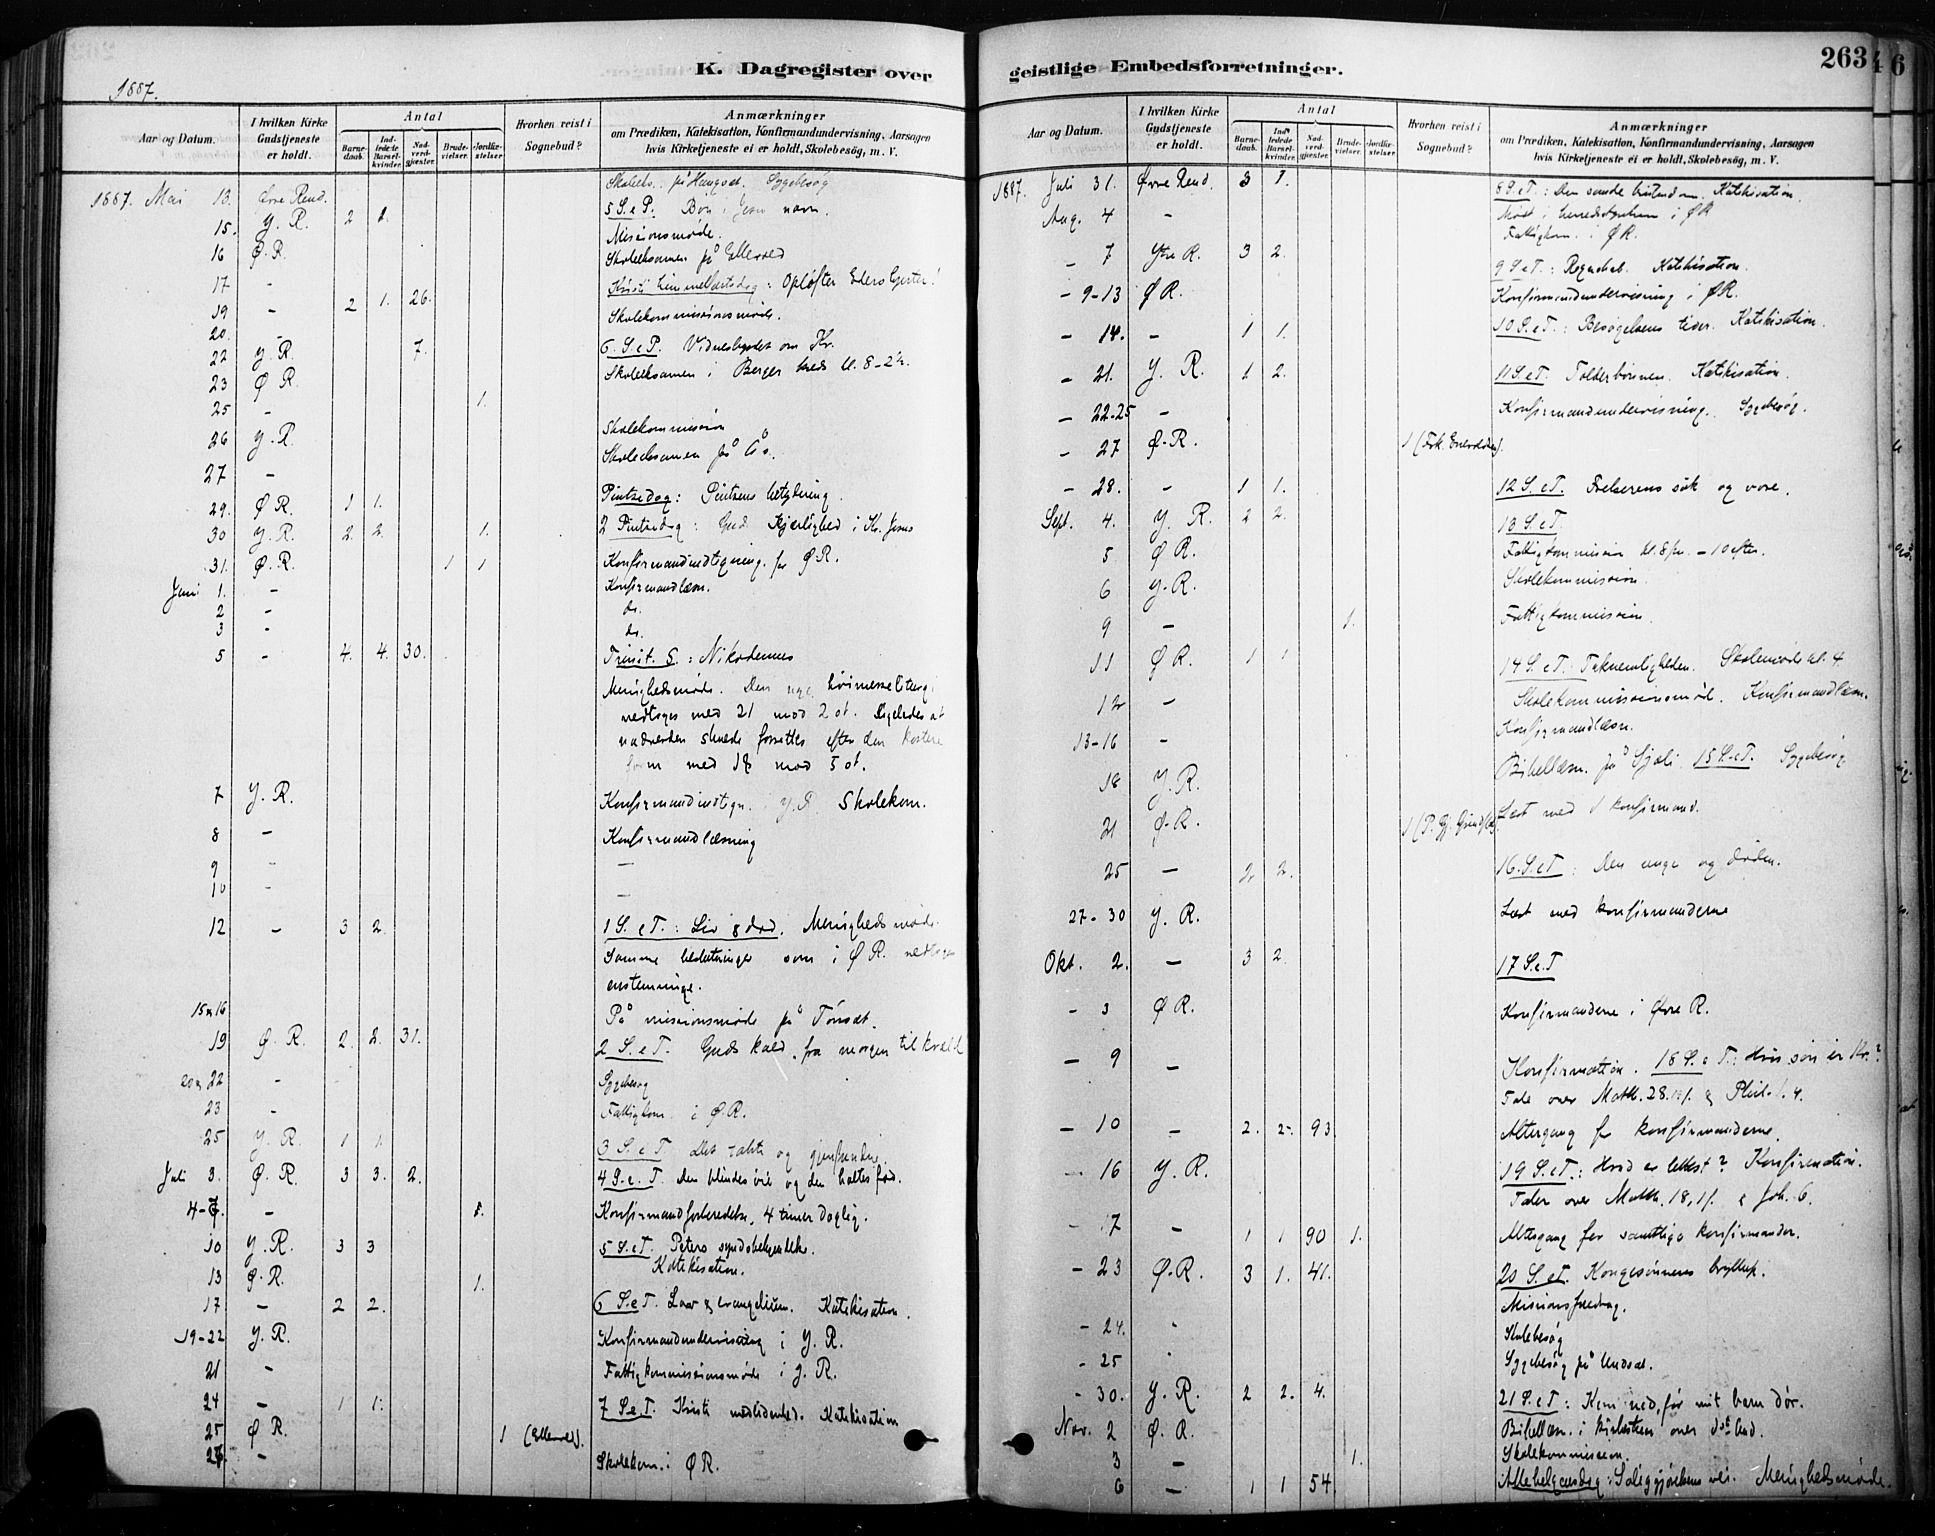 1887.
K. Dagregister over
Aar og Datum.
I hvilken Kirke Gudstjeneste er holdt.
Antal
Barnedaab.
Indledede Barselkvinder.
Nadverdgjæster.
Brudevielser.
Jordfæstelser.
Hvorhen reist i Sognebud?
Anmærkninger
om Prædiken, Katekisation, Konfirmandundervisning, Aarsagen
hvis Kirketjeneste ei er holdt, Skolebesøg, m. V.
1887. Mai 13. Øvre Rend. Sygebesøg
15. Y. R. 2 2. 5 S. e P. Bøn i Jesu navn.
16 Ø. R. Missionsmøde.
17 - Skoleeksamen på
19 - 2 1. 26. Kristi himmelfartsdag: Opløfter Eders hjerter!
20. - Skolekommissionsmøde.
22 Y. R. 7. 6. S. e P. Vidnesbyrdet om Kr.
23 Ø R. Skoleeksamen i Berger kreds kl. 8-2
25 - 1.
26 Y. R. Skolekommission
27 - Skoleeksamen på Ås.
29. Ø R. 1 1. Pintsedag: Pintsens betydning.
30 Y. R. 2. 2. 1. 2 Pintsedag: Guds Kjærlighed i Kr. Jesus
31. Ø. R. 1 1 Konfirmandindtegning for Ø R.
Juni 1. - Konfirmandlæsn.
2 - do.
3 - do.
5 - 4. 4. 30. Trinit. S.: Nikodemus
Menighedsmøde. Den nye høimesseliturgi
vedtoges med 21 mod 2 st. Ligeledes at
nadverden skulde forrettes efter den kortere
form med 18 mod 5 st.
7 Y. R. Konfirmandindtegn. Y R Skolekom.
8 - Konfirmandlæsning
9 - —
10 - —
12 - 3 2. 1 S. e T.: Liv & død. Menighedsmøde.
Samme beslutninger som i Ø R. vedtoges
enstemmige.
15 16 På missionsmøde på Tönset.
19 Ø. R. 2. 2. 31. 2 S. e T. Guds kald, fra morgen til kveld
22 - Sygebesøg
23 - Fattigkom. i Ø. R.
25 Y. R. 1 1. 3 S. e T. Det tabte og gjenfundne.
Juli 3. Ø. R. 3 3. 2. 4 S. e. T. Den blindes vei og den haltes fod.
4-7. - 1. Konfirmandforberedelse, 4 timer daglig.
10 Y. R. 3 3 5 S. e T. Peters syndsbekjendelse.
Katekisation.
13 Ø. R. 1.
17 - 2 2. 6 S. e T. Lov & evangelium. Katekisation.
19-22 Y. R. Konfirmandundervisning i Y. R.
21 - Fattigkommissionsmøde i Y. R.
24 - 1 1. 7 S. e. T. Kristi medlidenhed. Katekisation
25 Ø R. 1
26. - Skolekom. i Ø R.
geistlige Embedsforretninger.
263
4 6
Aar og Datum.
I hvilken Kirke Gudstjeneste er holdt.
Antal
Barnedaab.
Indledede Barselkvinder.
Nadverdgjæster.
Brudevielser.
Jordfæstelser.
Hvorhen reist i Sognebud?
Anmærkninger
om Prædiken, Katekisation, Konfirmandundervisning, Aarsagen
hvis Kirketjeneste ei er holdt, Skolebesøg, m. V.
1887. Juli 31. Øvre Rend. 3 1. 8 S. e T.: Den sande kristendom. Katekisation.
Aug. 4 - Møde i herredsstyrelsen i Ø R
Fattigkom. i Ø R.
- 7 Ytre R. 3 2. 9 S e T.: Regnskab. Katekisation.
- 9-13 Ø R. Konfirmandundervisning i Ø R.
- 14. - 1 1. 10 S. e T.: Besøgelsens tider. Katekisation.
- 21. Y. R. 1 2. 11 S. e T. Tolderbønnen. Katekisation.
- 22-25 - Konfirmandundervisning. Sygebesøg.
- 27 Ø. R. 1
- 28. - 1 1. 12 S. e T. Frelserens suk og vore.
Sept. 4. Y. R. 2 2. 13 S. e T.
5 Ø R. Fattigkommission kl. 8 for. - 10 efter.
6 Y. R. Skolekommission.
9 - 1. Fattigkommission.
11 Ø R. 1 1 14 S. e T.: Taknemligheden. Skolemøde kl. 4
12 - Skolekommissionsmøde. Konfirmandlæsn.
13-16 - Konfirmandlæsn.
18 Y. R. Bibellæsn. på Sjøli. 15 S. e T. Sygebesøg
21 Ø. R. 1 Læst med 1 konfirmand.
25 - 2 2. 16. S. e T.: Den unge og døden.
27-30 Y. R. Læst med konfirmanderne
Okt. 2. - 3 2. 17 S. e. T
- 3 Ø R. Konfirmanderne i Øvre R.
- 9 - Konfirmation. 18 S. e T.: Hvis søn er Kr.?
Tale over Matth. 28. & Phil. 1. 4.
- 10 - 2. 2. 93 Altergang for konfirmanderne.
- 16 Y. R. 19 S. e T.: Hvad er lettest? Konfirmation.
Taler over Matth. 18, 1f. & Joh. 6.
- 17 - 1 1 90 1. Altergang for samtlige konfirmander.
- 23 Ø. R. 3 1. 41. 20 S. e T. Kongesønnens bryllup.
Missionsforedrag.
- 24. - Skolebesøg
- 25 - Sygebesøg på Undset.
- 30. Y. R. 2 2. 4. 21 S. e T: Kom ned, før mit barn dør.
Nov. 2 Ø. R. Bibellæsn. i
3 - 1. Skolekommission.
6 - 1 1 54 Allehelgensdag: Saliggjørelsens vei. Menighedsmøde.